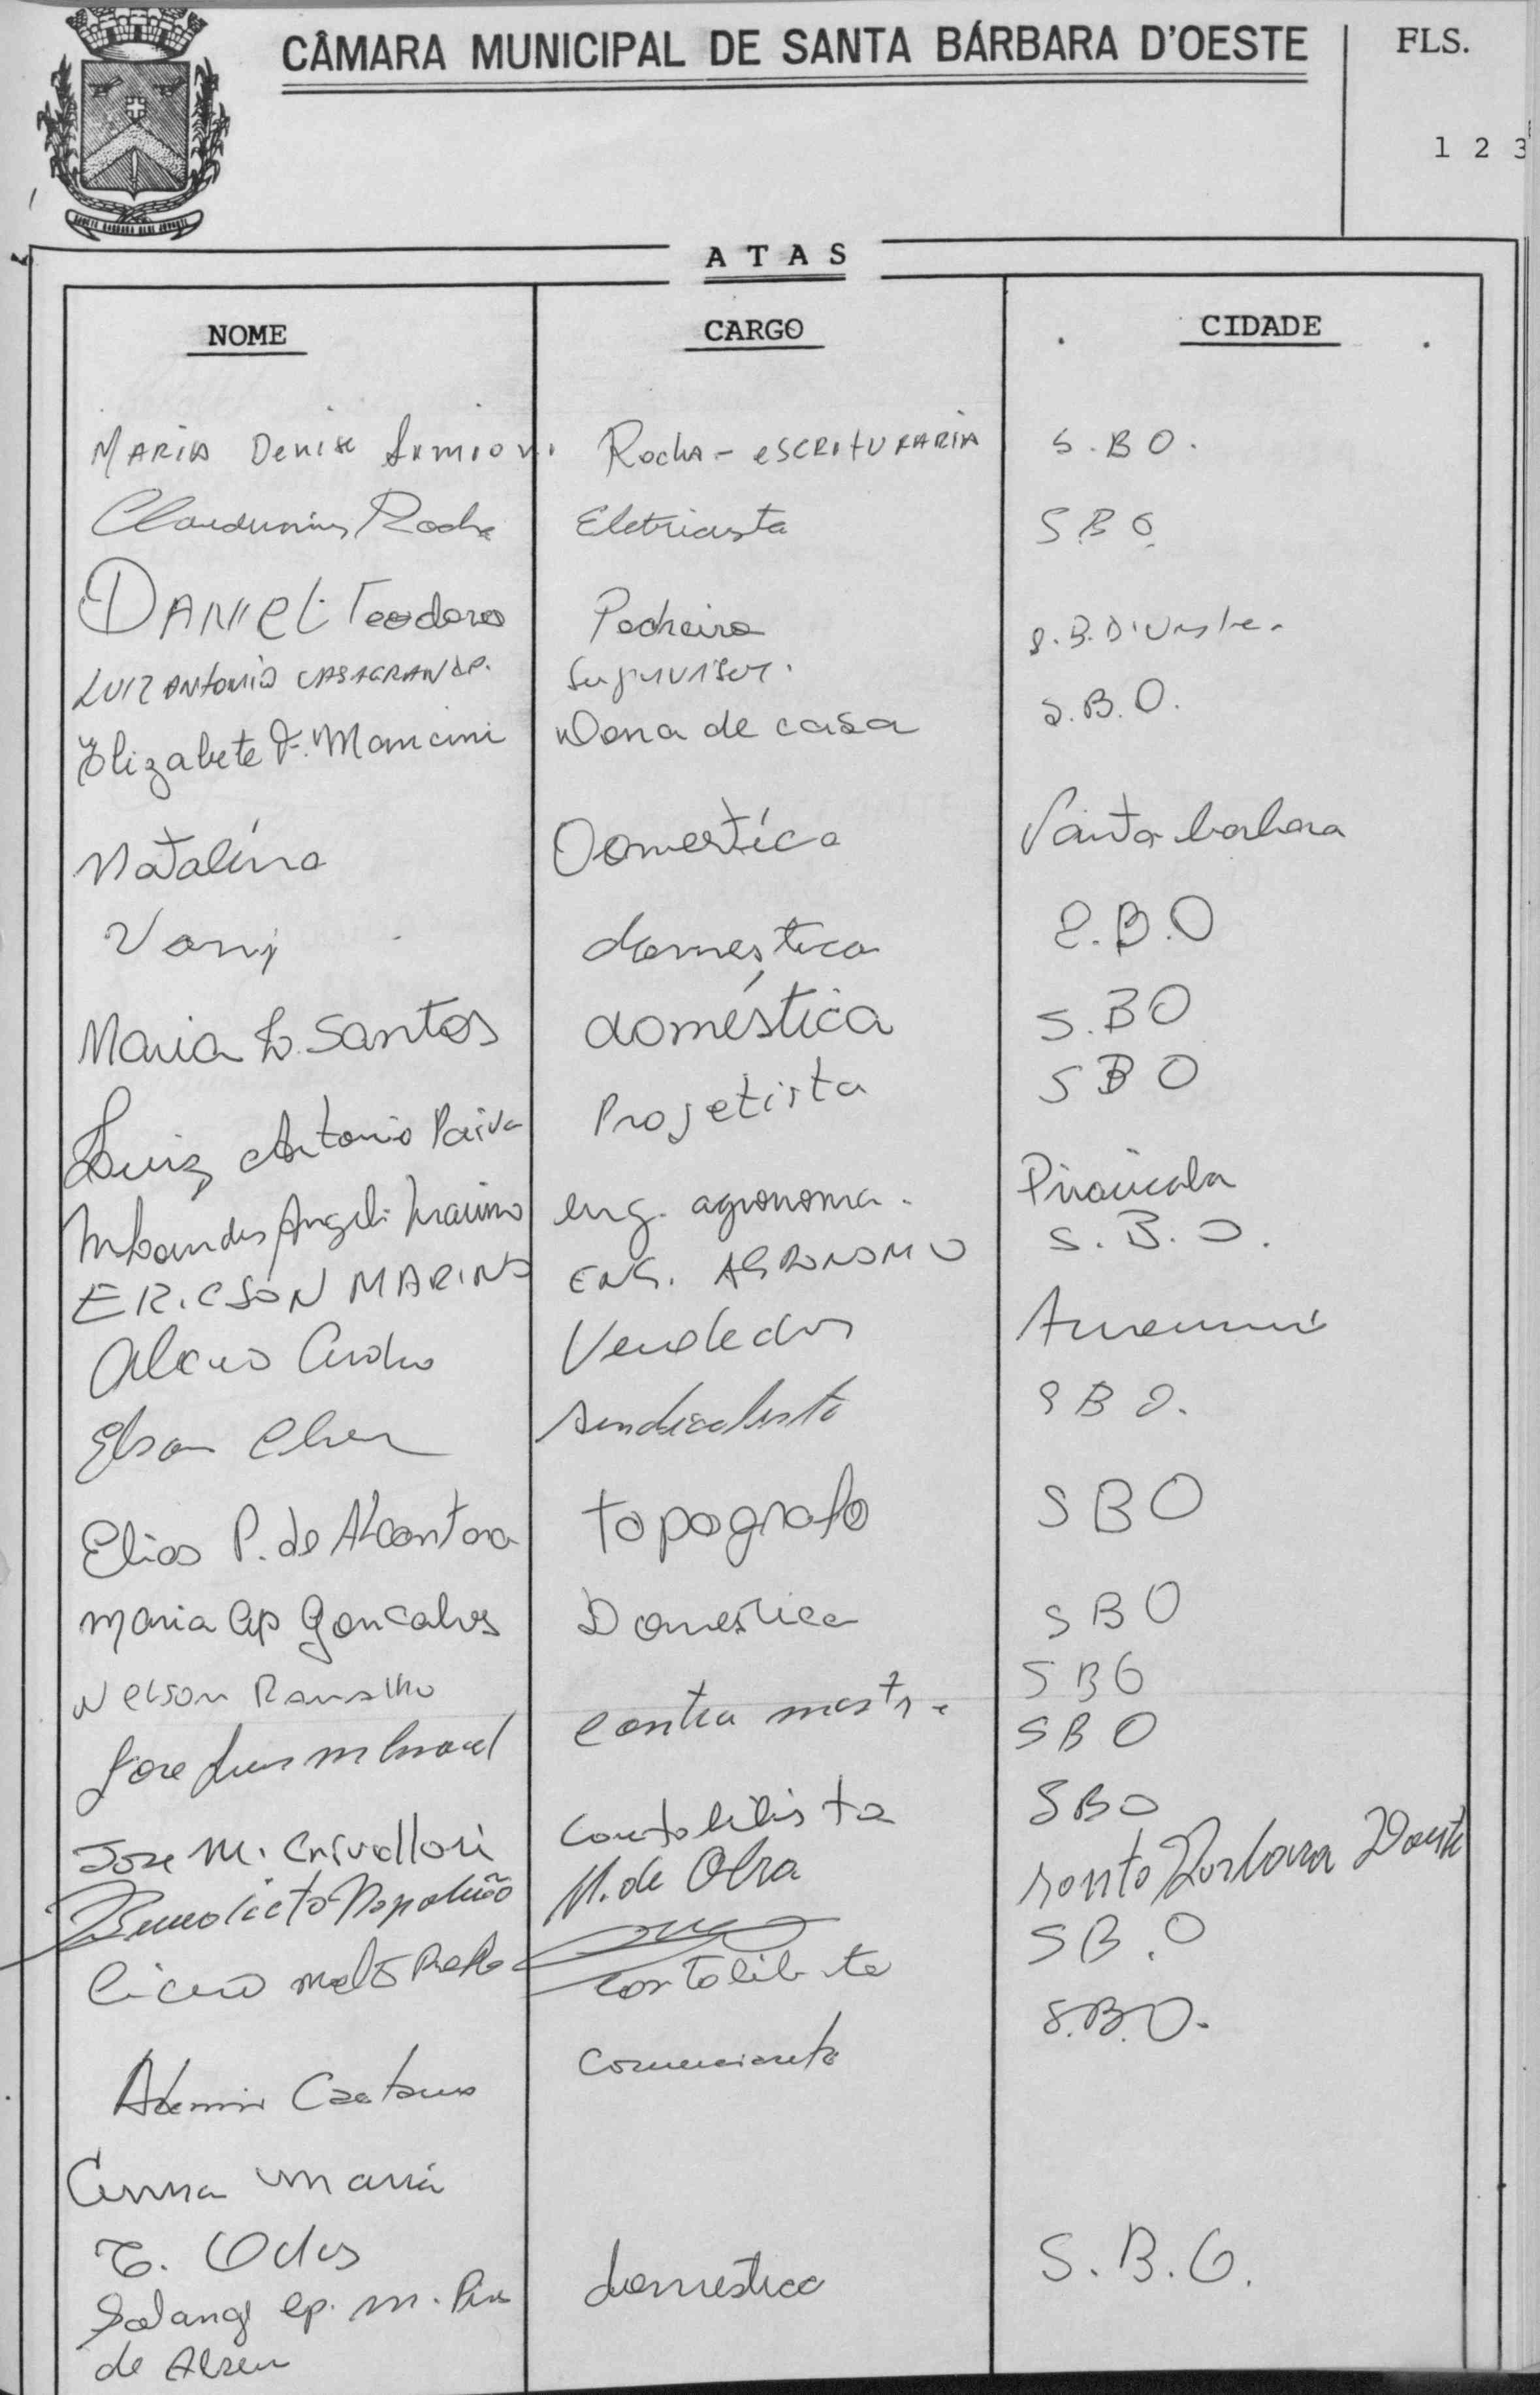 CÂMARA MUNICIPAL DE SANTA BÁRBARA D'OESTE
FLS.
1 2 3
A T A S
NOME CARGO CIDADE
MARIA Denise Simioni Rocha - eSCRITURARIA S.B O.
Claudemir Rocha Eletricista S B O
DANIEL Teodoro Pedreiro S.B.D'Oeste.
LUIZ ANTONIO CASAGRANDE. Supervisor. S.B.O.
Elizabete F. Mancini Dona de casa
Natalína Domestíca Santa barbara
Vani domestica S.B.O
Maria L. Santos doméstica S.BO
Luiz Antonio Paiva Projetista S B O
Angeli eng. agronoma. Piracicaba
ERICSON MARINO ENG. AGRONOMO S.B.O.
Vendedor
Sindicalista S B O.
Elias P. de Alcantara topografo S B O
Maria Ap Goncalves Domestica S B O
Nelson Ramalho contra mestre S B O
Jose Luis S B O
Jose M. Crivellari Contabilista S B O
Benedicto Napoleão M. de Obra Santo Barbara Doeste
Cicero contabilista S B.O
Ademir Caetano Comerciante S.B.O.
Anna Maria
domestica S.B.O.
Solange Ap. M.
de Abreu